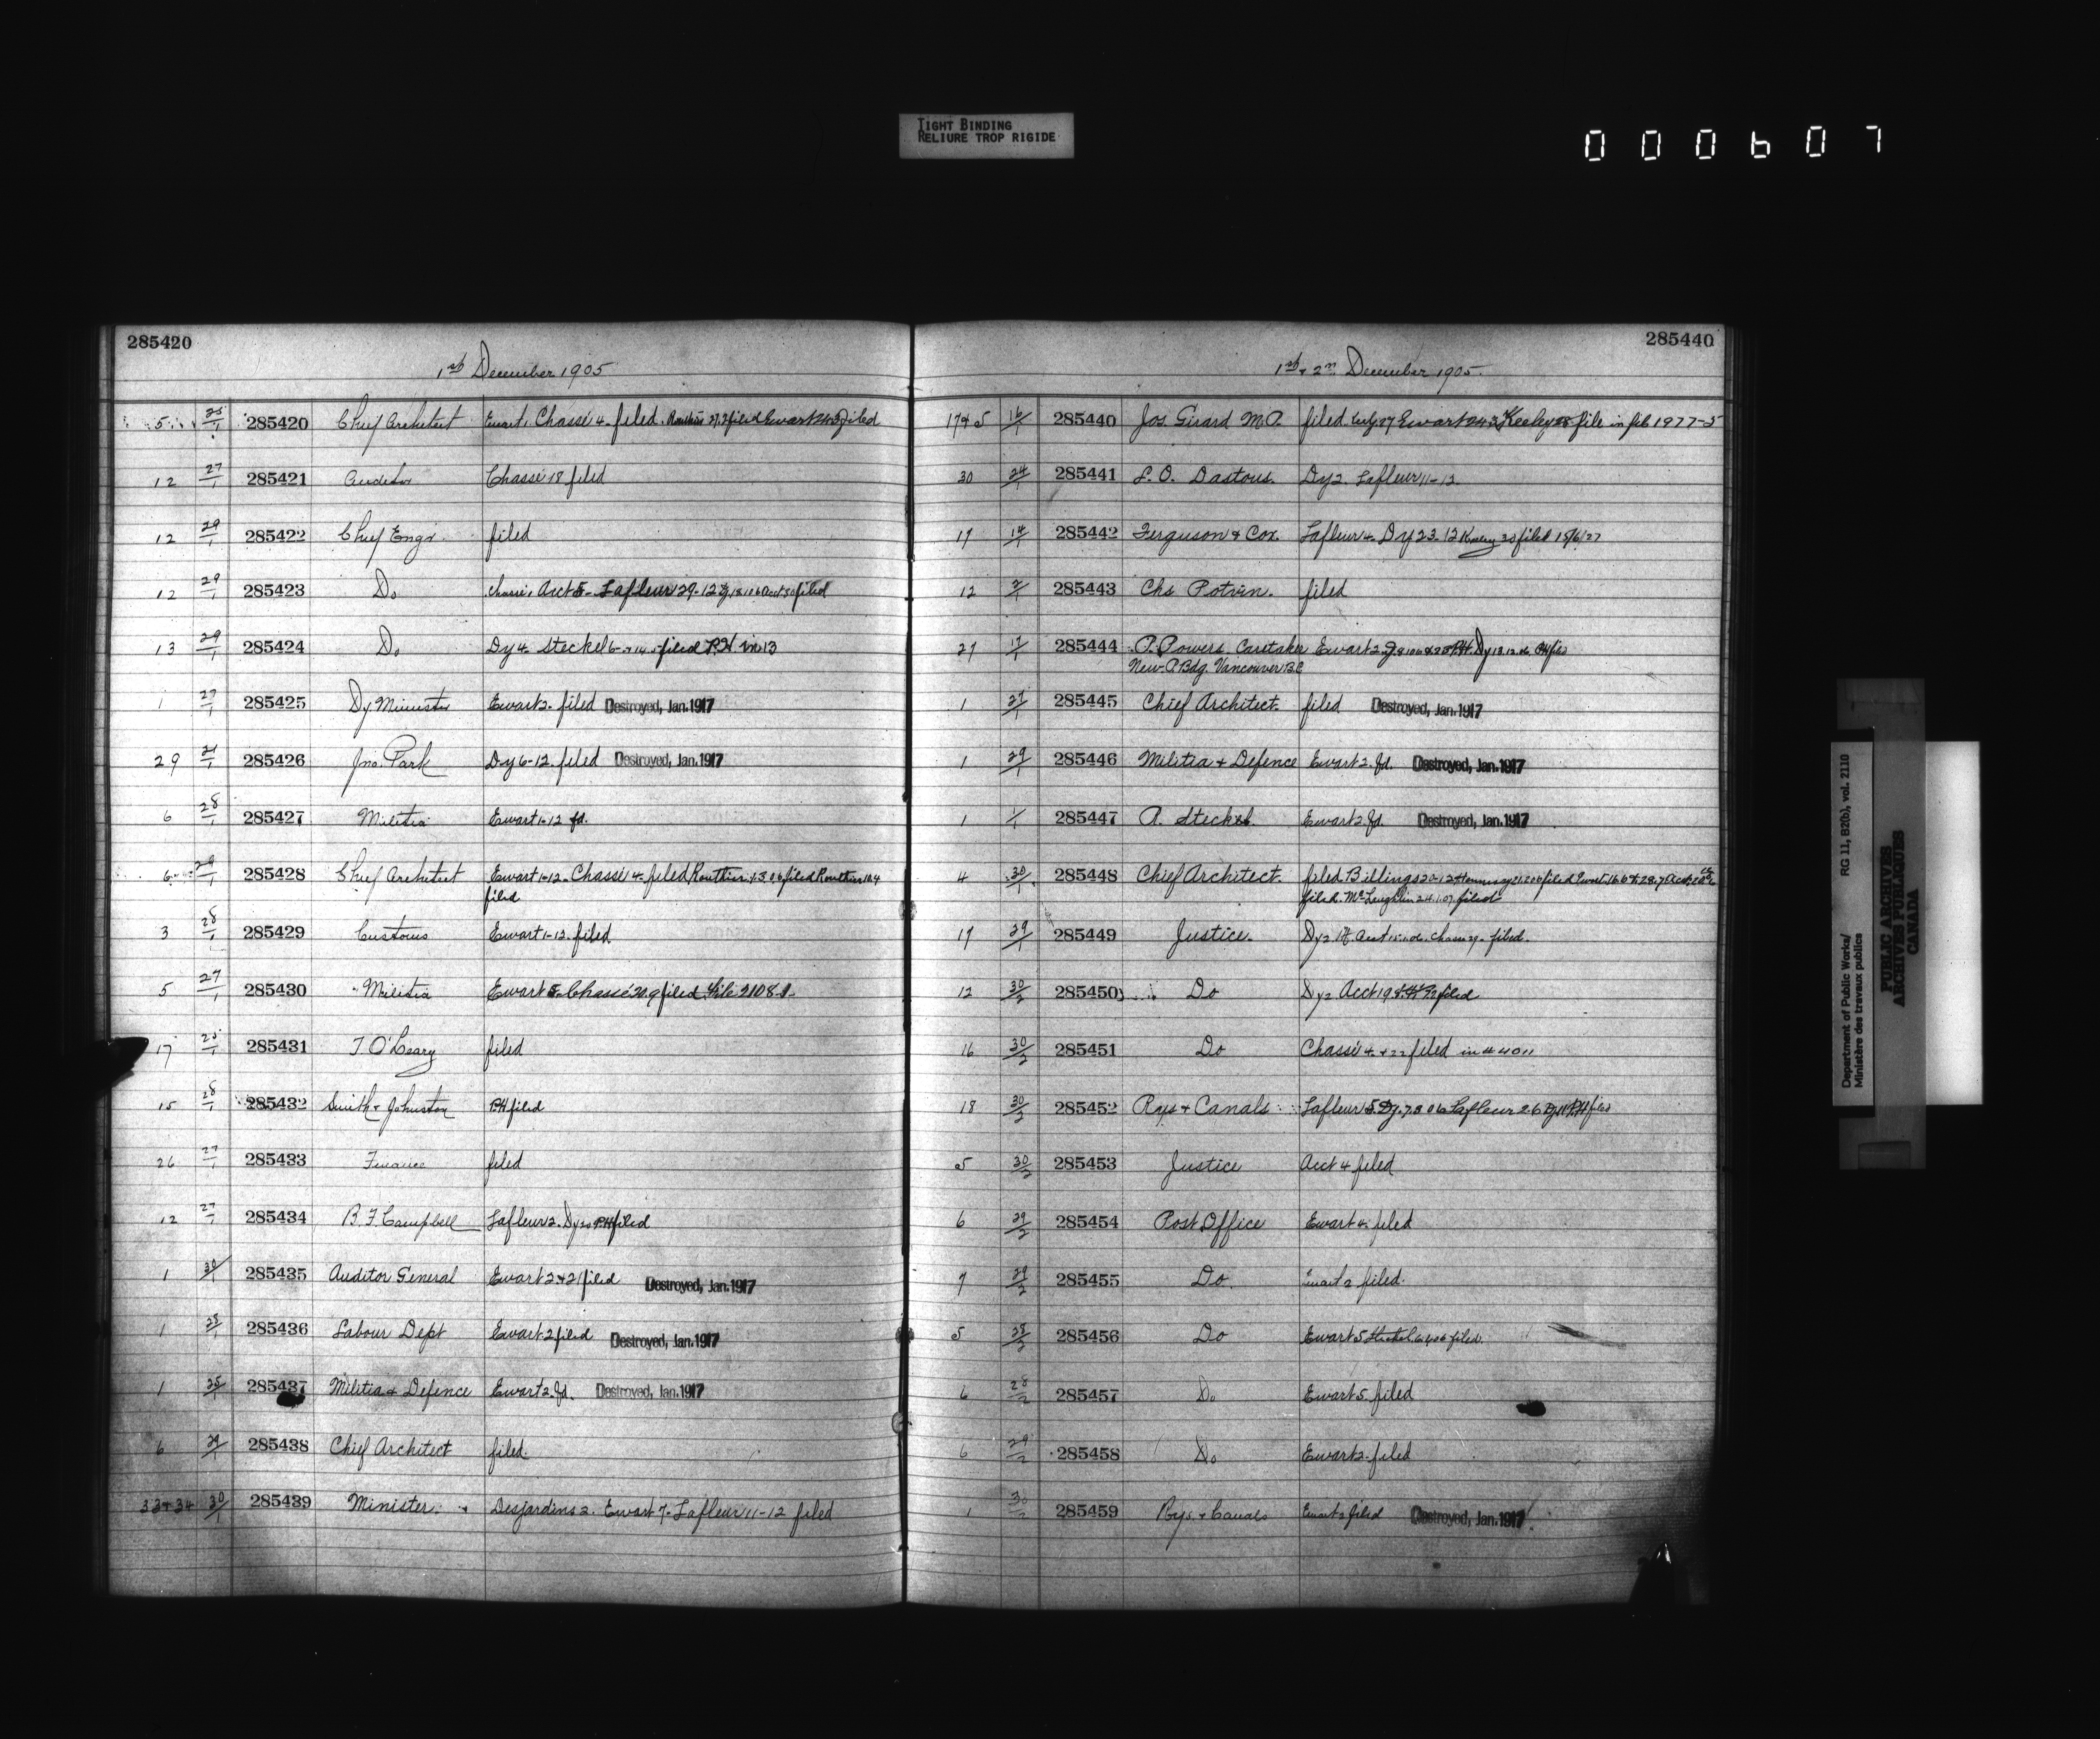 TIGHT BINDING
RELIURE TROP RIGIDE
000607
285420
1st December 1905
5 25/1 285420 Chief Architect Ewart 1 Chassé 4 filed Ewart filed
12 27/1 285421 Auditor Chassé 18 filed
12 29/1 285422 Chief Engr filed
12 29/1 285423 Do Chassé 1 Acct 5 Lafleur 29-12 filed
13 29/1 285424 Do Dy 4 Steckel 6 filed P.H. in 13
1 27/1 285425 Dy Minister Ewart 2 filed Destroyed, Jan. 1917
29 21/1 285426 Jno. Park Dy 6-12 filed Destroyed, Jan. 1917
6 28/1 285427 Militia Ewart 1-12 fd.
6 29/1 285428 Chief Architect Ewart 1-12 Chassé 4 filed Routhier 1.3.06 filed Routhier 10.4
filed
3 28/1 285429 Customs Ewart 1-12 filed
5 27/1 285430 Militia Ewart 5 Chassé 20.9 filed File 2108-1
17 25/1 285431 T O'Leary filed
15 28/1 285432 Smith & Johnston P.H filed
26 27/1 285433 Finance filed
12 27/1 285434 B. F Campbell Lafleur 2. Dy 20 P.H filed
1 30/1 285435 Auditor General Ewart 2 & 21 filed Destroyed, Jan. 1917
1 28/1 285436 Labour Dept Ewart 2 filed Destroyed, Jan. 1917
1 25/1 285437 Militia & Defence Ewart 2. fd. Destroyed, Jan. 1917
6 29/1 285438 Chief Architect filed
33 & 34 30/1 285439 Minister Desjardins 2. Ewart 7. Lafleur 11-12 filed
285440
1st & 2nd December 1905.
17 & 5 16/1 285440 Jos. Girard M.P. filed Ewart 24.3 Keeley 28 file in file 1977-5
30 24/1 285441 L. O. Dastous. Dy 2. Lafleur 11-12
19 14/1 285442 Ferguson & Cox. Lafleur 4. Dy 23-12 Keeley 30 filed 15/6/27
12 2/1 285443 Chs Potvin. filed
27 17/1 285444 P. Powers Caretaker Ewart 2 P.H. Dy 13.12.06 P.H filed
New P. Bdg. Vancouver B.C
1 27/1 285445 Chief Architect. filed Destroyed, Jan. 1917
1 29/1 285446 Militia & Defence Ewart 2. fd. Destroyed, Jan. 1917
1 1/1 285447 R. Steckel. Ewart 2. fd. Destroyed, Jan. 1917
4 30/1 285448 Chief Architect. filed Billings 20-12 filed Ewart
filed. McLaughlin 24.1.07 filed
17 29/1 285449 Justice. Dy 2 Acct 15.1.06. Chassé 29. filed.
12 30/2 285450 Do Dy 2 Acct 19 filed
16 30/2 285451 Do Chassé 4 & 22 filed in # 4011
18 30/2 285452 Rys & Canals Lafleur 5. Dy. 7.3.06 Lafleur 2.6 Dy 11 P.H filed
5 30/2 285453 Justice Acct 4 filed
6 29/2 285454 Post Office Ewart 4. filed
7 29/2 285455 Do. Ewart 2 filed.
5 28/2 285456 Do Ewart 5 Steckel filed.
6 28/2 285457 Do Ewart 5. filed
6 29/2 285458 Do Ewart 2. filed
1 30/2 285459 Rys. & Canals Ewart 2 filed Destroyed, Jan. 1917
Department of Public Works/ RG 11, B2(b), vol. 2110
Ministère des travaux publics
PUBLIC ARCHIVES
ARCHIVES PUBLIQUES
CANADA